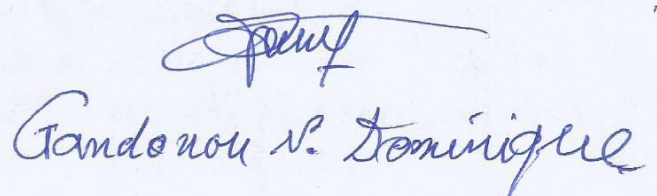 Gandonou N. Dominique